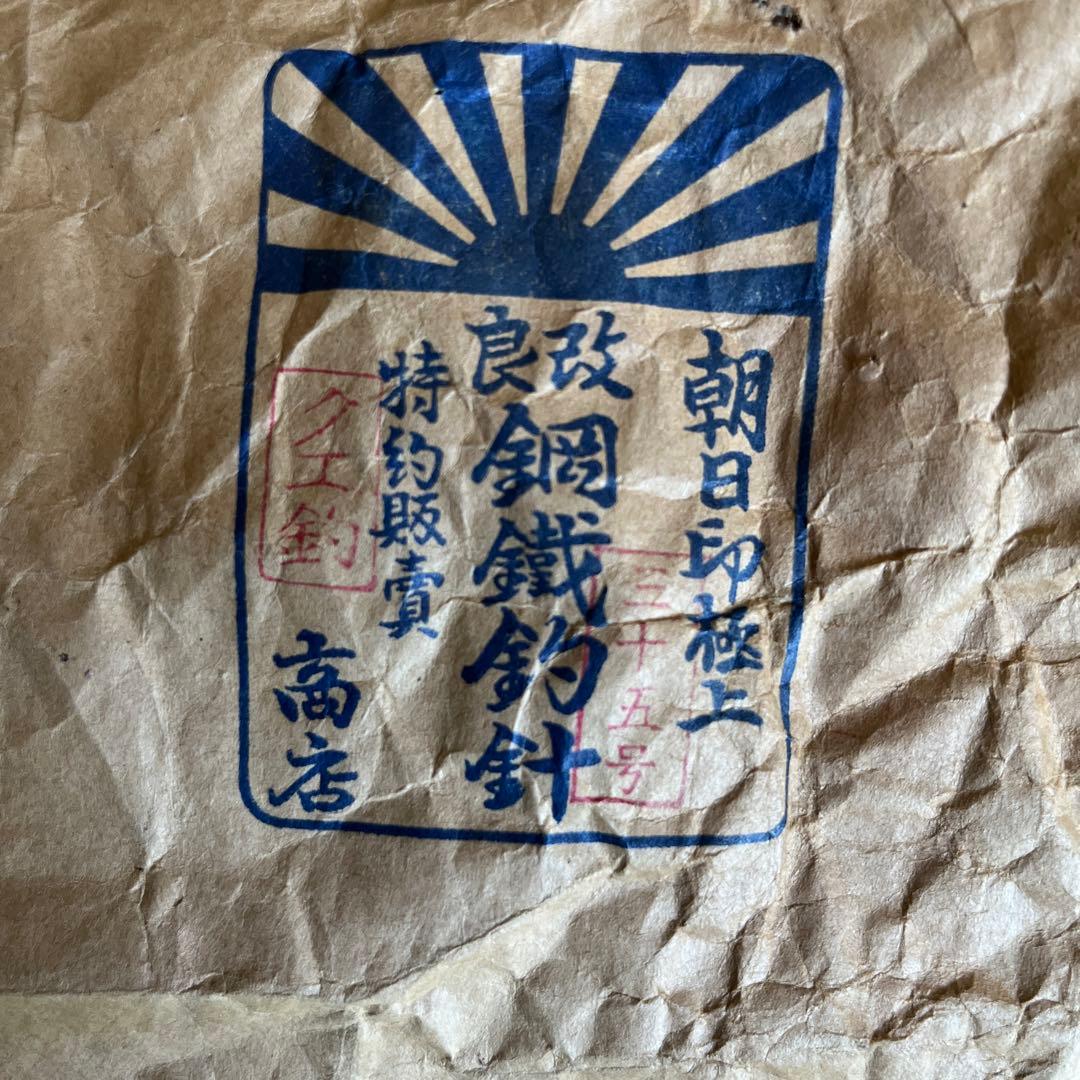 朝日印極上
改良
鋼鐵釣針
特約販賣
商店
三十五号
クエ釣